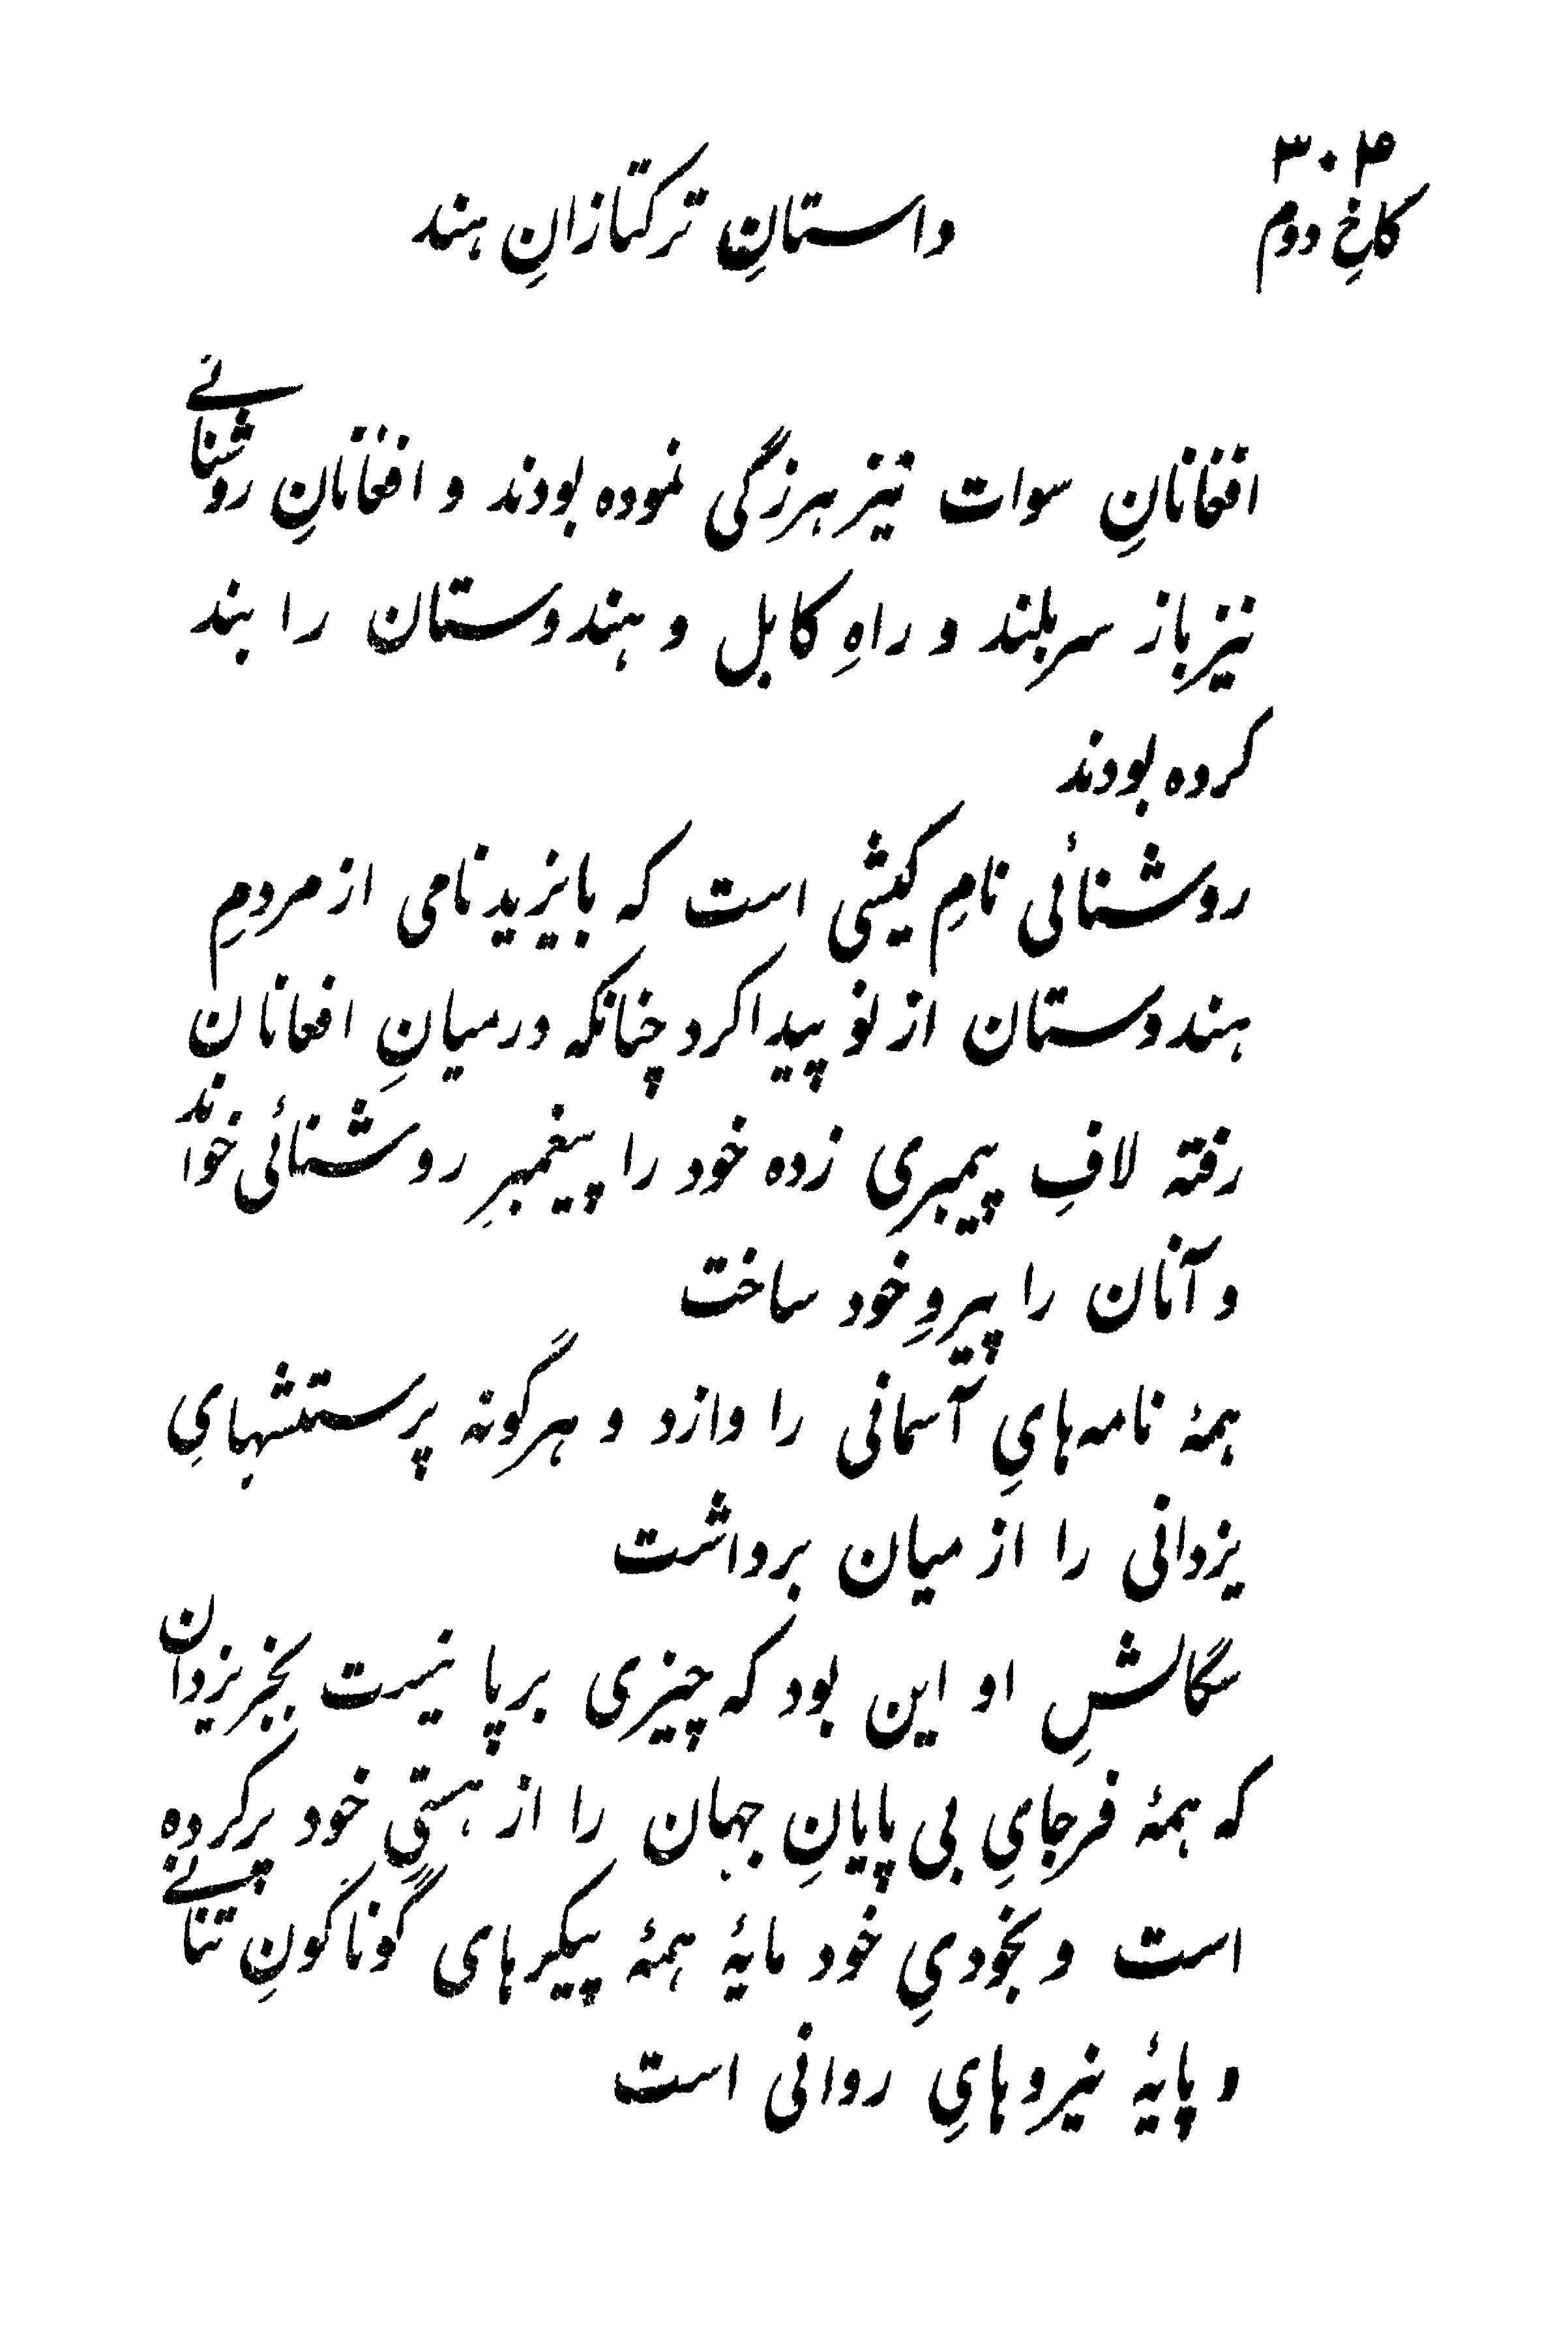 ۳۰۴
کاخِ دوم
داستانِ ترکتازانِ هند
افغانانِ سوات نیز هرزگی نموده بودند و افغانانِ روشنائے
نیز باز سر بلند و راهِ کابل و هندوستان را بند
کرده بودند
روشنائی نامِ کیشی است که بایزید نامی از مردمِ
هندوستان از نو پیدا کرد چنانکه در میانِ افغانان
رفته لافِ پیمبری زده خود را پیغمبرِ روشنائی خواند
و آنان را پیروِ خود ساخت
همهٔ نامه‌هایِ آسمانی را وازد و هرگونه پرستشهایِ
یزدانی را از میان برداشت
سگالشِ او این بود که چیزی برپا نیست بجز یزدان
که همهٔ فرجایِ بی پایانِ جهان را از هستیِ خود پرکرده
است و بخودیِ خود مایهٔ همهٔ پیکرهای گوناگونِ تنانے
و پایهٔ نیروهایِ روانی است